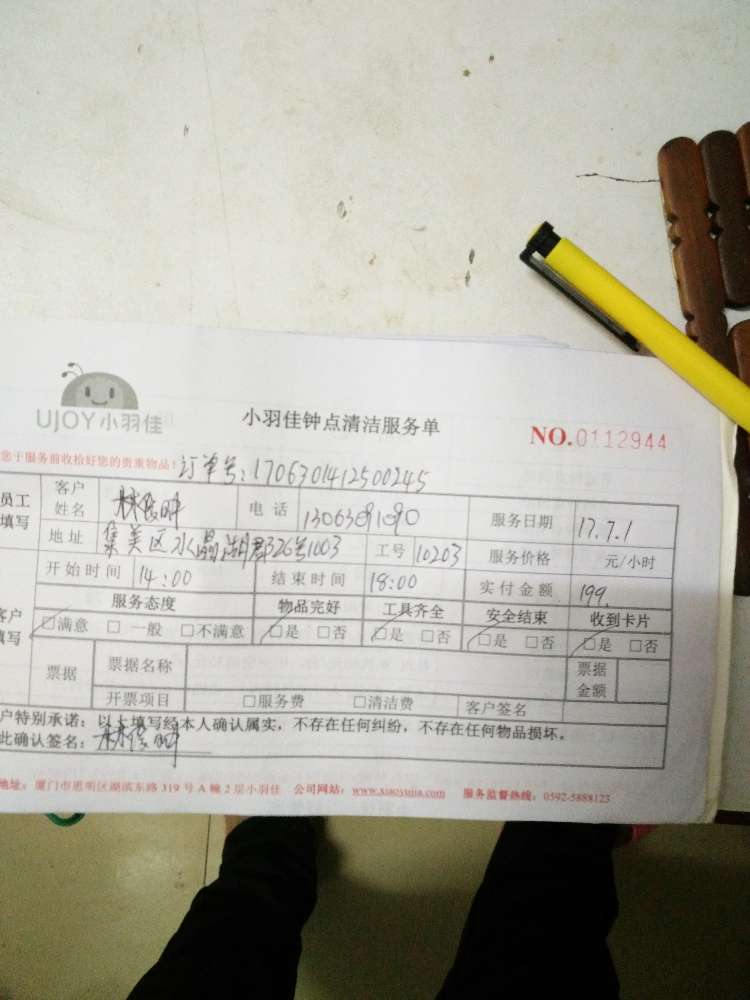 UJOY小羽佳
小羽佳钟点清洁服务单
NO.0112944
您于服务前收拾好您的贵重物品!
订单号:1706301412500245
员工填写 客户姓名 林 电话 13063091090 服务日期 17.7.1
地址 集美区水晶湖郡326号1003 工号 10203 服务价格 元/小时
开始时间 14:00 结束时间 18:00 实付金额 199.
客户填写 服务态度 物品完好 工具齐全 安全结束 收到卡片
□满意 □一般 □不满意 □是 □否 □是 □否 □是 □否 □是 □否
票据 票据名称 票据金额
开票项目 □服务费 □清洁费 客户签名
户特别承诺:以上填写经本人确认属实,不存在任何纠纷,不存在任何物品损坏。
此确认签名: 林
地址:厦门市思明区湖滨东路319号A幢2层小羽佳 公司网站:www.xiaoyujia.com 服务监督热线:0592-5888123